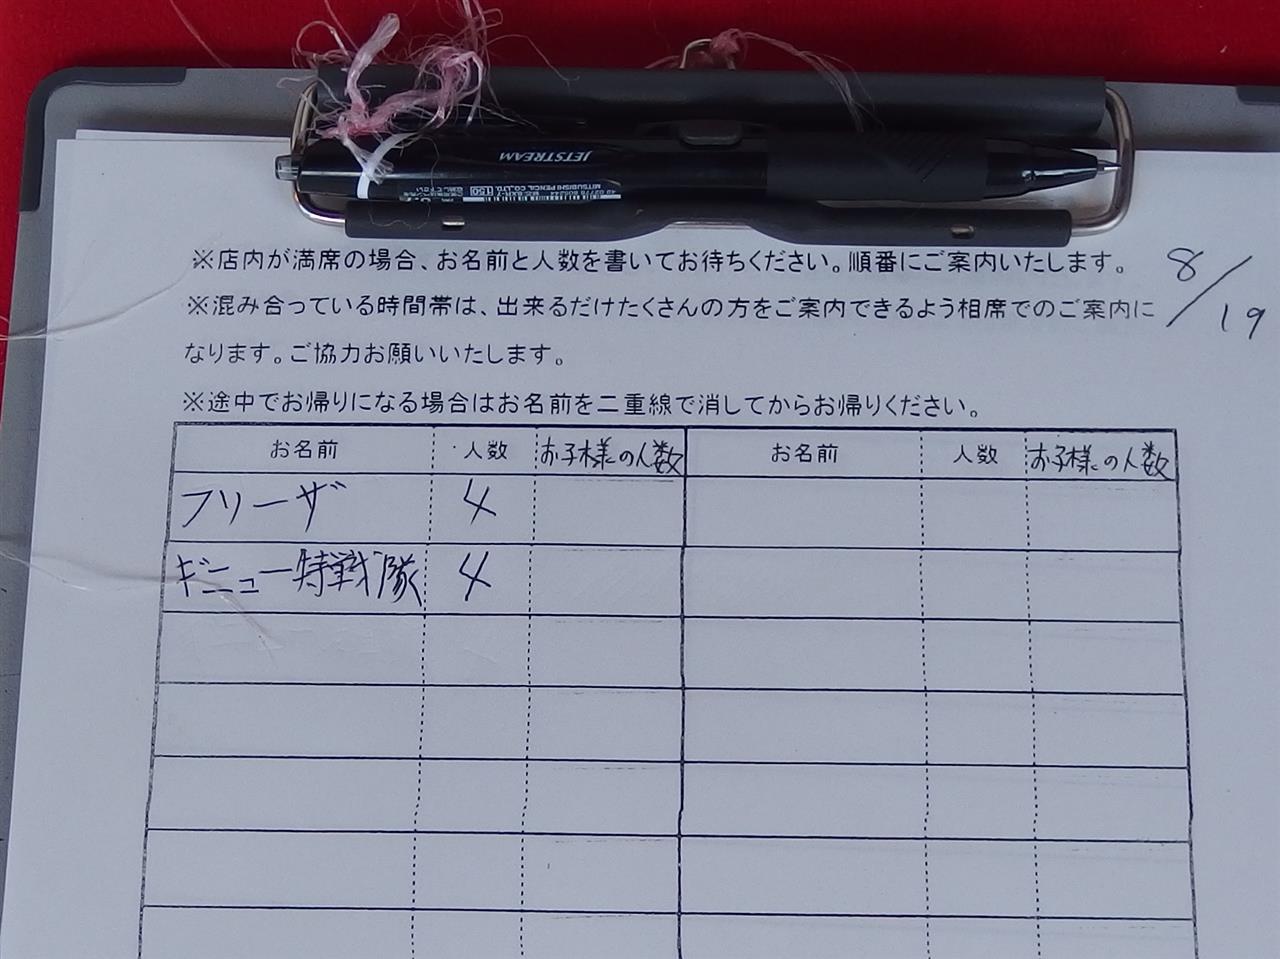 JETSTREAM
MITSUBISHI PENCIL CO.,LTD.
150
※店内が満席の場合、お名前と人数を書いてお待ちください。順番にご案内いたします。
8/19
※混み合っている時間帯は、出来るだけたくさんの方をご案内できるよう相席でのご案内に
なります。ご協力お願いいたします。
※途中でお帰りになる場合はお名前を二重線で消してからお帰りください。
お名前 人数 お子様の人数 お名前 人数 お子様の人数
フリーザ 4
ギニュー特戦隊 4